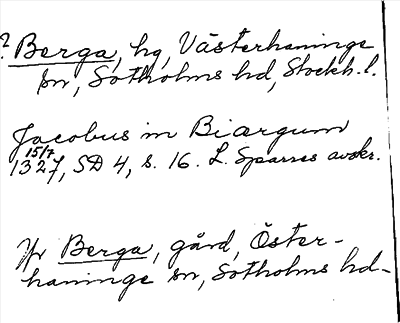 ? Berga, hg, Västerhaninge
sn, Sotholms hd, Stockh. l.
Jacobus in Biærgum
15/7
1327, SD 4, s. 16. L. Sparres avskr.
Jfr Berga, gård, Öster-
haninge sn, Sotholms hd